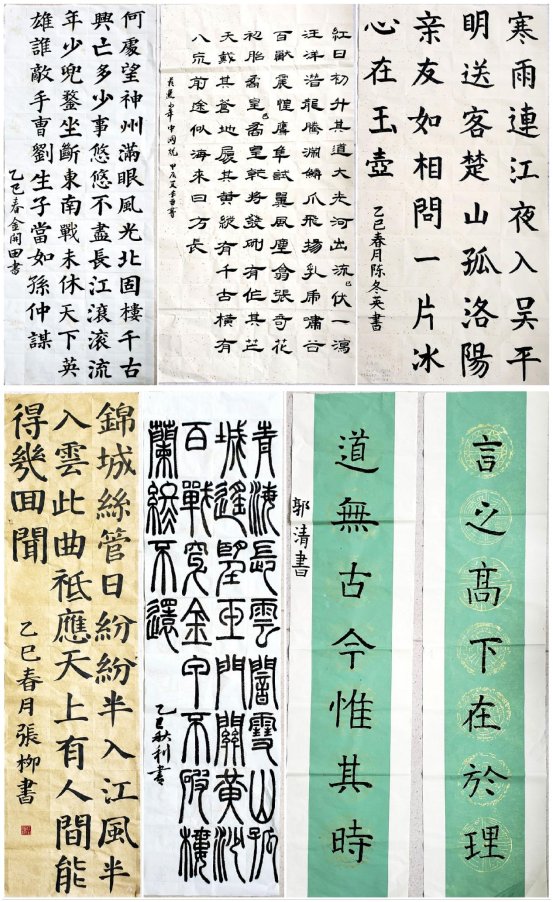 何處望神州滿眼風光北固樓千古
興亡多少事悠悠不盡長江滾滾流
年少兜鍪坐斷東南戰未休天下英
雄誰敵手曹劉生子當如孫仲謀
乙巳春金開田書
紅日初升其道大光河出流伏一瀉
汪洋潜龍騰淵鱗爪飛揚乳虎嘯谷
百獸震惶鷹隼試翼風塵翕張奇花
初胎矞皇矞皇乾將發硎有作其芒
天戴其蒼地履其黃縱有千古橫有
八荒前途似海來日方長
少年中國說
寒雨連江夜入吳平
明送客楚山孤洛陽
亲友如相問一片冰
心在玉壺
乙巳春月陈冬英書
錦城絲管日紛紛半入江風半
入雲此曲祗應天上有人間能
得幾回聞
乙巳春月張柳書
青海長雲闇雪山孤
城遥望玉門關黄沙
百戰穿金甲不破樓
蘭終不還
乙巳秋利書
言之高下在於理
道無古今惟其時
郭清書